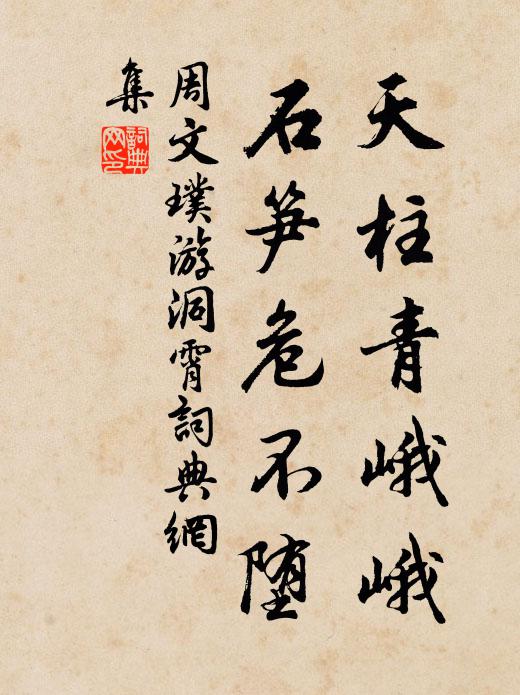 天柱青峨峨
石笋危不堕
周文璞游洞霄詞典網
集
詞典網印